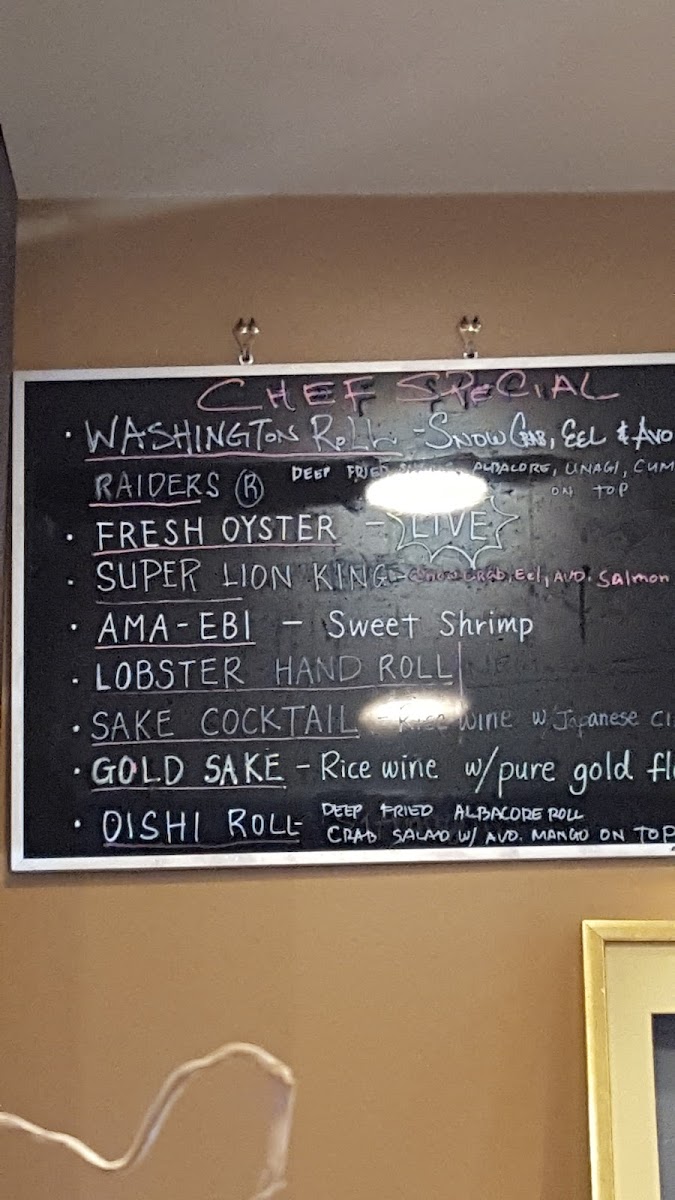 CHEF SPECIAL
· WASHINGTON ROLL - SNOW CRAB, EEL & AVO
RAIDERS Ⓡ DEEP FRIED ALBACORE, UNAGI, CUM
ON TOP
· FRESH OYSTER - LIVE
· SUPER LION KING - Snow CRAB, Eel, AVO. Salmon
· AMA-EBI - Sweet Shrimp
· LOBSTER HAND ROLL
· SAKE COCKTAIL - Rice wine w/ Japanese Ci
· GOLD SAKE - Rice wine w/pure gold fl
· OISHI ROLL - DEEP FRIED ALBACORE ROLL
CRAB SALAD W/ AVO. MANGO ON TOP